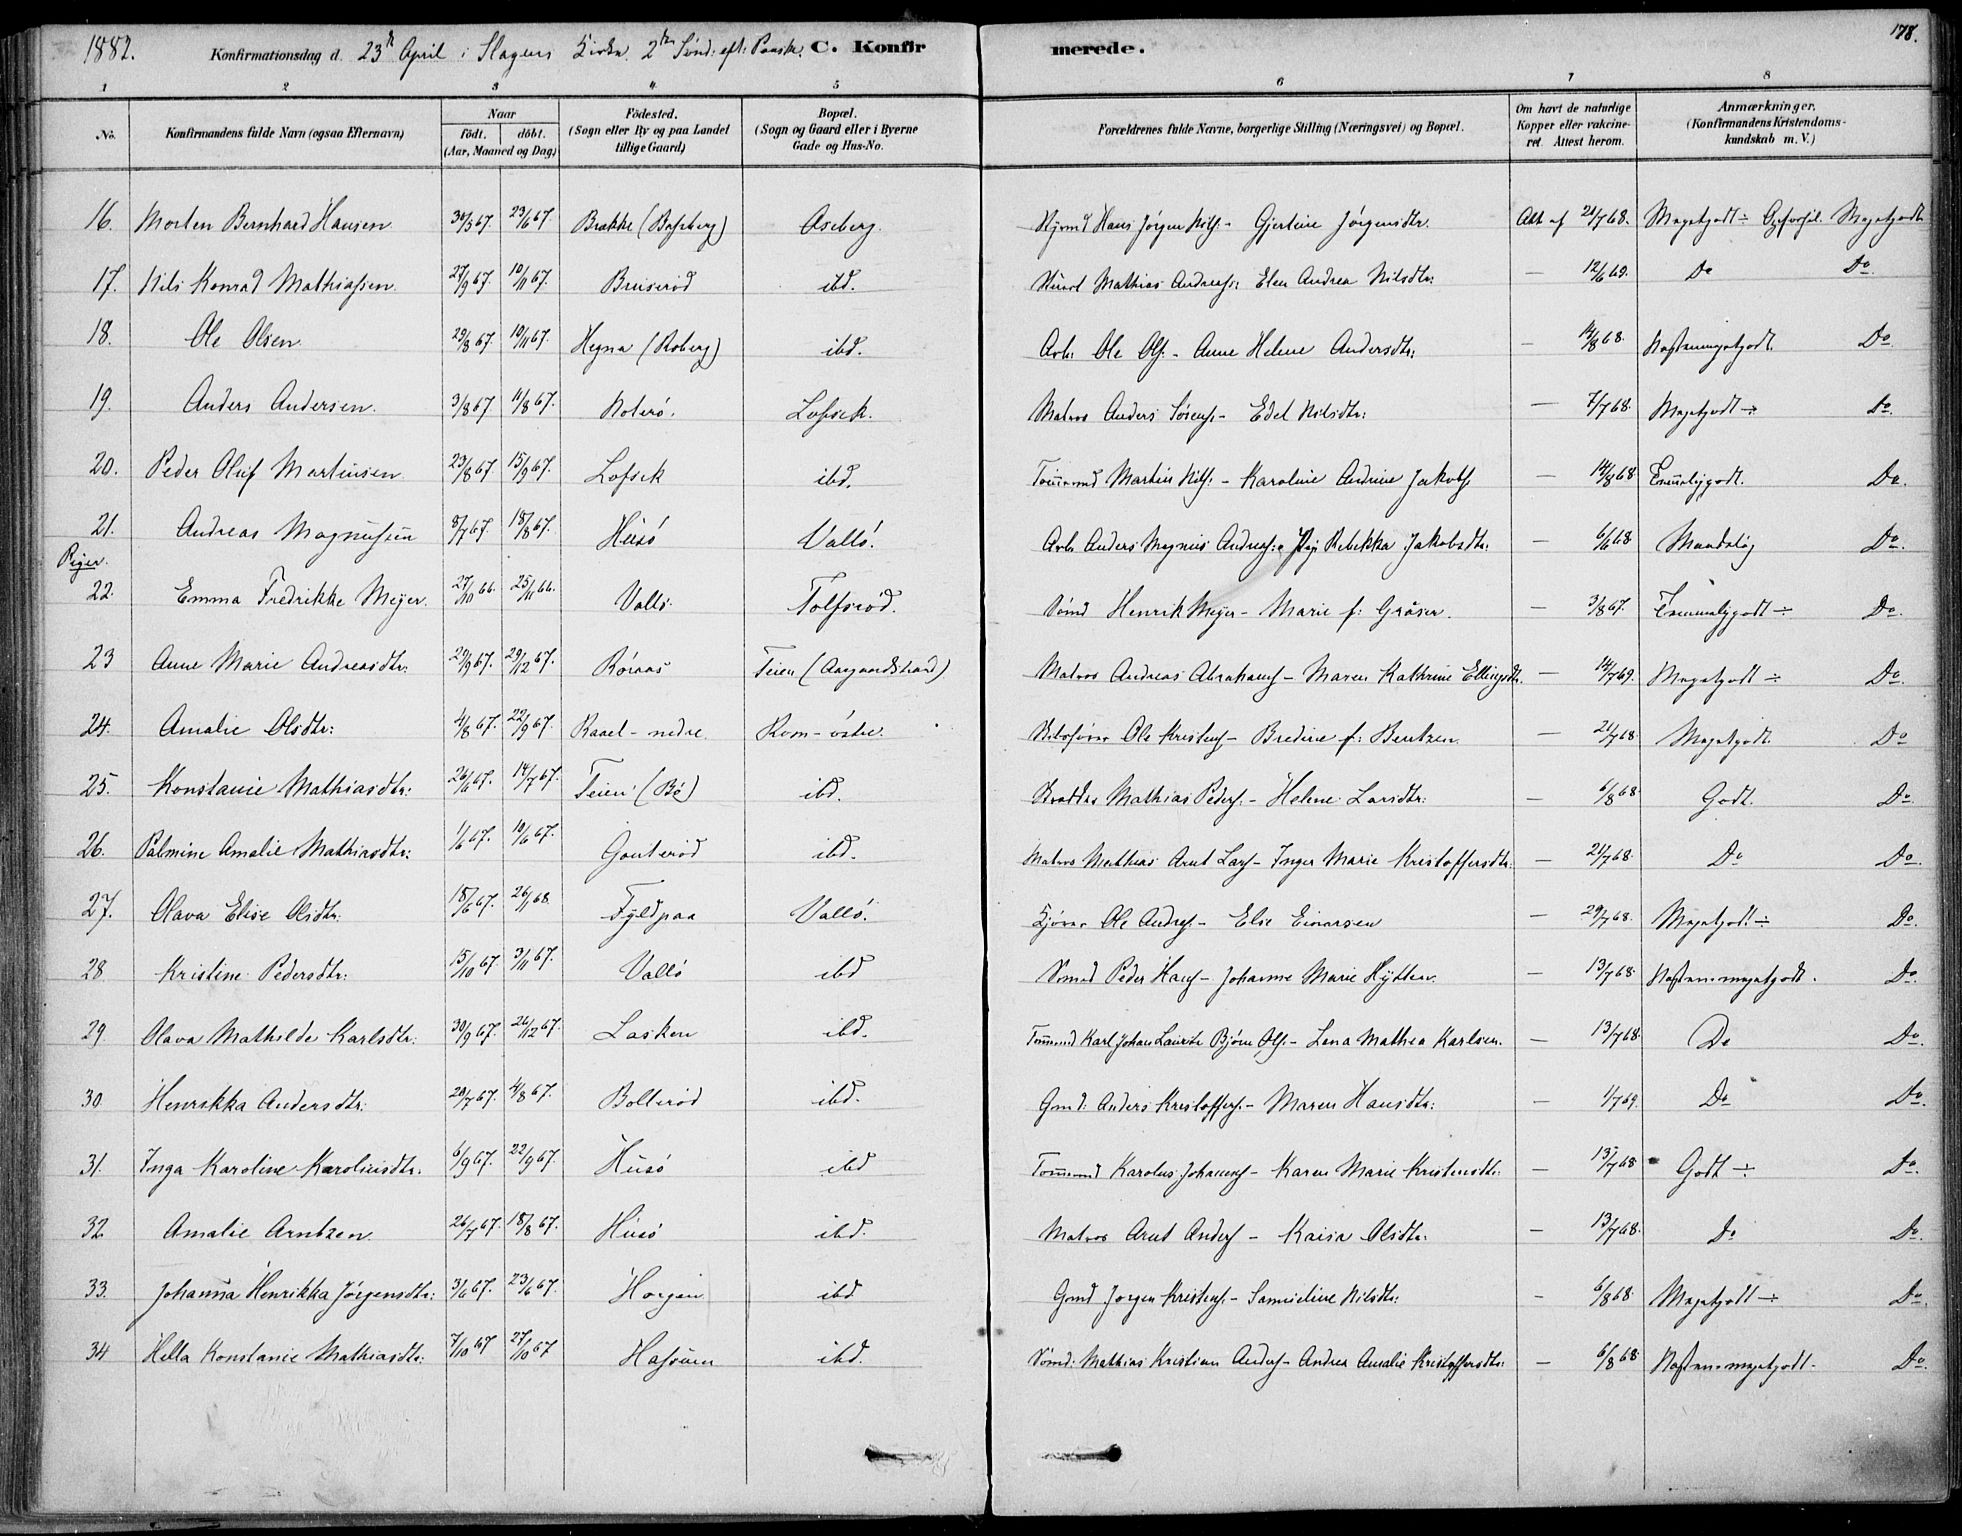 1882. Konfirmationsdag d. 23de April i Slagens Kirke 2den Sønd: eft: Paaske C. Konfirmerede. 178.
1 2 3 4 5 6 7 8
No. Konfirmandens fulde Navn (ogsaa Efternavn) Naar födt. döbt. (Aar, Maaned og Dag) Födested. (Sogn eller By og paa Landet tillige Gaard) Bopæl. (Sogn og Gaard eller i Byerne Gade og Hus-No. Forældrenes fulde Navne, borgerlige Stilling (Næringsvei) og Bopæl. Om havt de naturlige Kopper eller vakcineret. Attest herom. Anmærkninger. (Konfirmandens Kristendomskundskab m. V.)
16. Morten Bernhard Hansen 30/5 67. 23/6 67. Brække (Basberg) Aseberg. Hans Jørgen Nils: - Gjertine Jørgensdtr. Att af 21/7 68. Megetgodt ÷ Megetgodt
17. Nils Konrad Mathiassen 27/9 67. 10/11 67. Bruserød ibd. Mathias Andreas: Elen Andrea Nilsdtr: — 12/6 69. Do Do.
18. Ole Olsen. 29/8 67. 10/11 67. Hegna (Roberg) ibd. Arb: Ole Ols: - Anne Helene Andersdtr: — 14/8 68. Næstenmegetgodt. Do.
19. Anders Andersen. 3/8 67 11/8 67. Noterø. Lofsek. Matros Anders Sørens. - Edel Nilsdtr: — 7/7 68. Megetgodt ÷ Do.
20. Peder Oluf Martinsen 23/8 67. 15/9 67. Lofsek ibd. Tømmmd Martin Nils: - Karoline Andrine Jakobs — 14/8 68 Temmeliggodt. Do.
21. Andreas Magnussen 8/7 67. 18/8 67. Husø Vallø. Arb. Anders Magnus Andreas: Rebekka Jakobsdtr: — 6/6 68 Maadelig Do.
Piger.
22. Emma Fredrikke Meyer. 27/10 66. 25/11 66. Vallø. Tolfsrød. Sømd Henrik Meyer - Marie f: Gråser. — 3/8 67. Temmeliggodt ÷ Do.
23 Anne Marie Andreasdtr. 29/9 67. 29/12 67. Røraas Teien (Aasgaardstrand) Matros Andreas Abrahams - Maren Kathrine Ellingsdtr. — 14/7 69. Megetgodt ÷ Do.
24. Amalie Olsdtr: 4/8 67. 22/9 67. Raael - nedre. Rom - østre. Ole Kristens - Bredine f: Bentzen. — 21/7 68 Megetgodt. Do
25. Konstanse Mathiasdtr: 26/6 67. 14/7 67. Teien (Bø) ibd. Mathias Peders: - Helene Larsdtr: — 6/8 68 Godt. Do.
26. Palmine Amalie Mathiasdtr: 1/6 67. 10/6 67. Gouterød ibd. Matros Mathias Arnt Lars - Inger Marie Kristoffersdtr: — 21/7 68. Do Do.
27. Olava Elise Olsdtr: 18/6 67. 26/1 68. Fyldpaa Vallø. Ole Andrs. - Else Einarsen — 29/7 68. Megetgodt ÷ Do.
28 Kristine Pedersdtr: 15/10 67. 3/11 67. Vallø ibd Sømd Peder Hans - Johanne Marie Hytten. — 13/7 68. Næstenmegetgodt. Do.
29. Olava Mathilde Karlsdtr: 30/9 67. 26/12 67. Lasken ibd. Tømmmd Karl Johan Lauritz Bjørn Ols. - Lena Mathea Karlsen. — 13/7 68. Do Do.
30 Henrikka Andersdtr: 20/7 67. 4/8 67. Bollerød ibd. Gmd: Anders Kristoffers. - Maren Hansdtr: — 1/7 69. Do Do.
31. Inga Karoline Karolusdtr. 6/9 67. 22/9 67. Husø ibd Tømmmd Karolus Johans - Karen Marie Kristensdtr: — 13/7 68 Godt ÷ Do.
32. Amalie Arntzen 26/7 67. 18/8 67. Husø ibd. Matros Arnt Anders - Kaisa Olsdtr: — 13/7 68. Do Do.
33. Johanna Henrikka Jørgensdtr: 3/6 67. 23/6 67. Horgen ibd Gmd Jørgen Kristens. - Samueline Nilsdtr: — 6/8 68. Megetgodt ÷ Do.
34 Hella Konstanse Mathiasdtr: 7/10 67 27/10 67 Hassum ibd. Sømd: Mathias Kristian Anders - Andrea Amalie Kristoffersdtr: — 6/8 68. Næstenmegetgodt. Do.